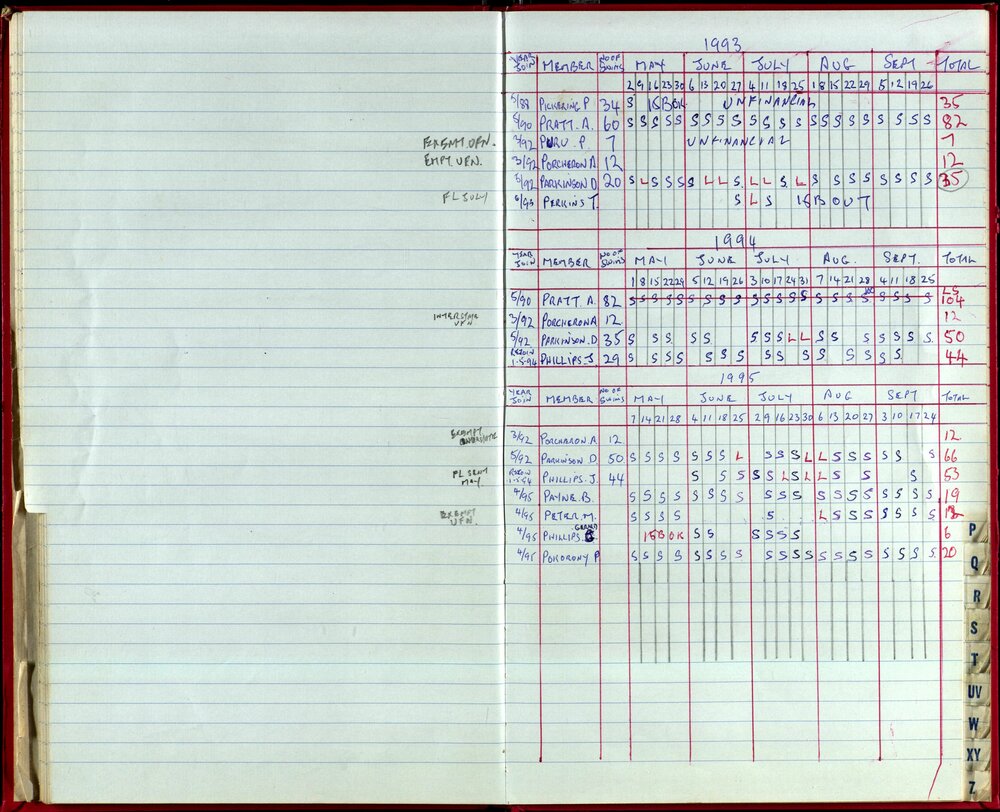 1993
YEAR JOIN MEMBER NO OF SWIMS MAY JUNE JULY AUG SEPT TOTAL
2 9 16 23 30 6 13 20 27 4 11 18 25 1 8 15 22 29 5 12 19 26
5/88 PICKERING P. 34 S 15BOK UNFINANCIAL 35
5/90 PRATT. A. 60 S S S S S S S S S S S S S S S S S S S S S S 82
EXEMPT. UFN. 3/92 PURU. P. 7 UNFINANCIAL 7
EMPT. UFN. 3/92 PORCHERON A 12 12
5/92 PARKINSON D. 20 S L S S S S L L S L L S L S S S S S S S S 35
FL JULY 6/93 PERKINS T. S L S 15B OUT
1994
YEAR JOIN MEMBER NO OF SWIMS MAY JUNE JULY AUG. SEPT. TOTAL
1 8 15 22 29 5 12 19 26 3 10 17 24 31 7 14 21 28 4 11 18 25
5/90 PRATT. A. 82 S S S S S S S S S S S S S S S S S S S S S S 100 LS 104
INTERSTATE UFN 3/92 PORCHERON A 12. 12
5/92 PARKINSON. D 35 S S S S S S S S L L S S S S S S S 50
REJOIN 1-5-94 PHILLIPS. J. 29 S S S S S S S S S S S S S S S 44
1995
YEAR JOIN MEMBER NO OF SWIMS MAY JUNE JULY AUG SEPT TOTAL
7 14 21 28 4 11 18 25 2 9 16 23 30 6 13 20 27 3 10 17 24
EXEMPT INTERSTATE 3/92 PORCHERON. A 12 12
5/92 PARKINSON D. 50 S S S S S S S L S S S L L S S S S S S S 66
FL SENT MAY REJOIN 1-5-94 PHILLIPS. J. 44 S S S S S L S L L S S S 53
4/95 PAYNE. B. S S S S S S S S S S S S S S S S S S S 19
EXEMPT UFN. 4/95 PETER. M. S S S S S L S S S S S S S
4/95 PHILLIPS. GRANT 15BOK S S S S S S 6
4/95 POKORONY P. S S S S S S S S S S S S S S S S S S S S S 20
P
Q
R
S
T
UV
W
XY
Z